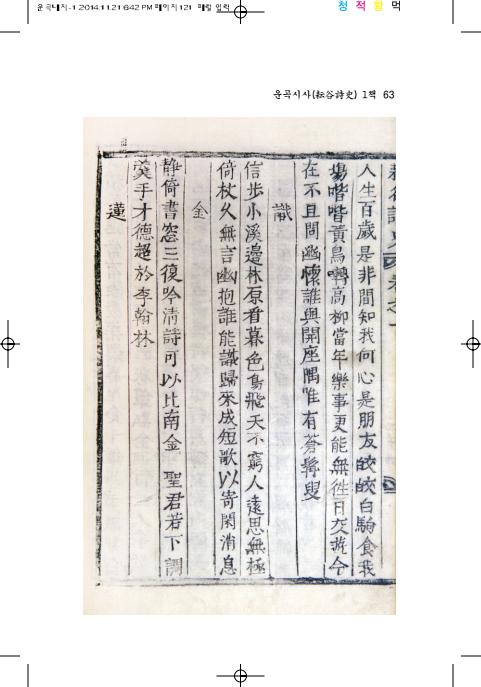 운곡내지-1 2014.11.21 6:42 PM 페이지121 매일 입력
청 적 황 먹
운곡시사(耘谷詩史) 1책 63
人生百歲是非間知我何心是朋友皎皎白駒食我
場喈喈黃鳥囀高柳當年樂事更能無徃日交遊今
在不且問幽懷誰與開座隅唯有蒼髯叟
識
信步小溪邊林原看暮色鳥飛天不窮人遠思無極
倚杖久無言幽抱誰能識歸來成短歌以寄閑消息
金
靜倚書窓三復吟清詩可以比南金 聖君若下調
羹手才德超於李翰林
蓮